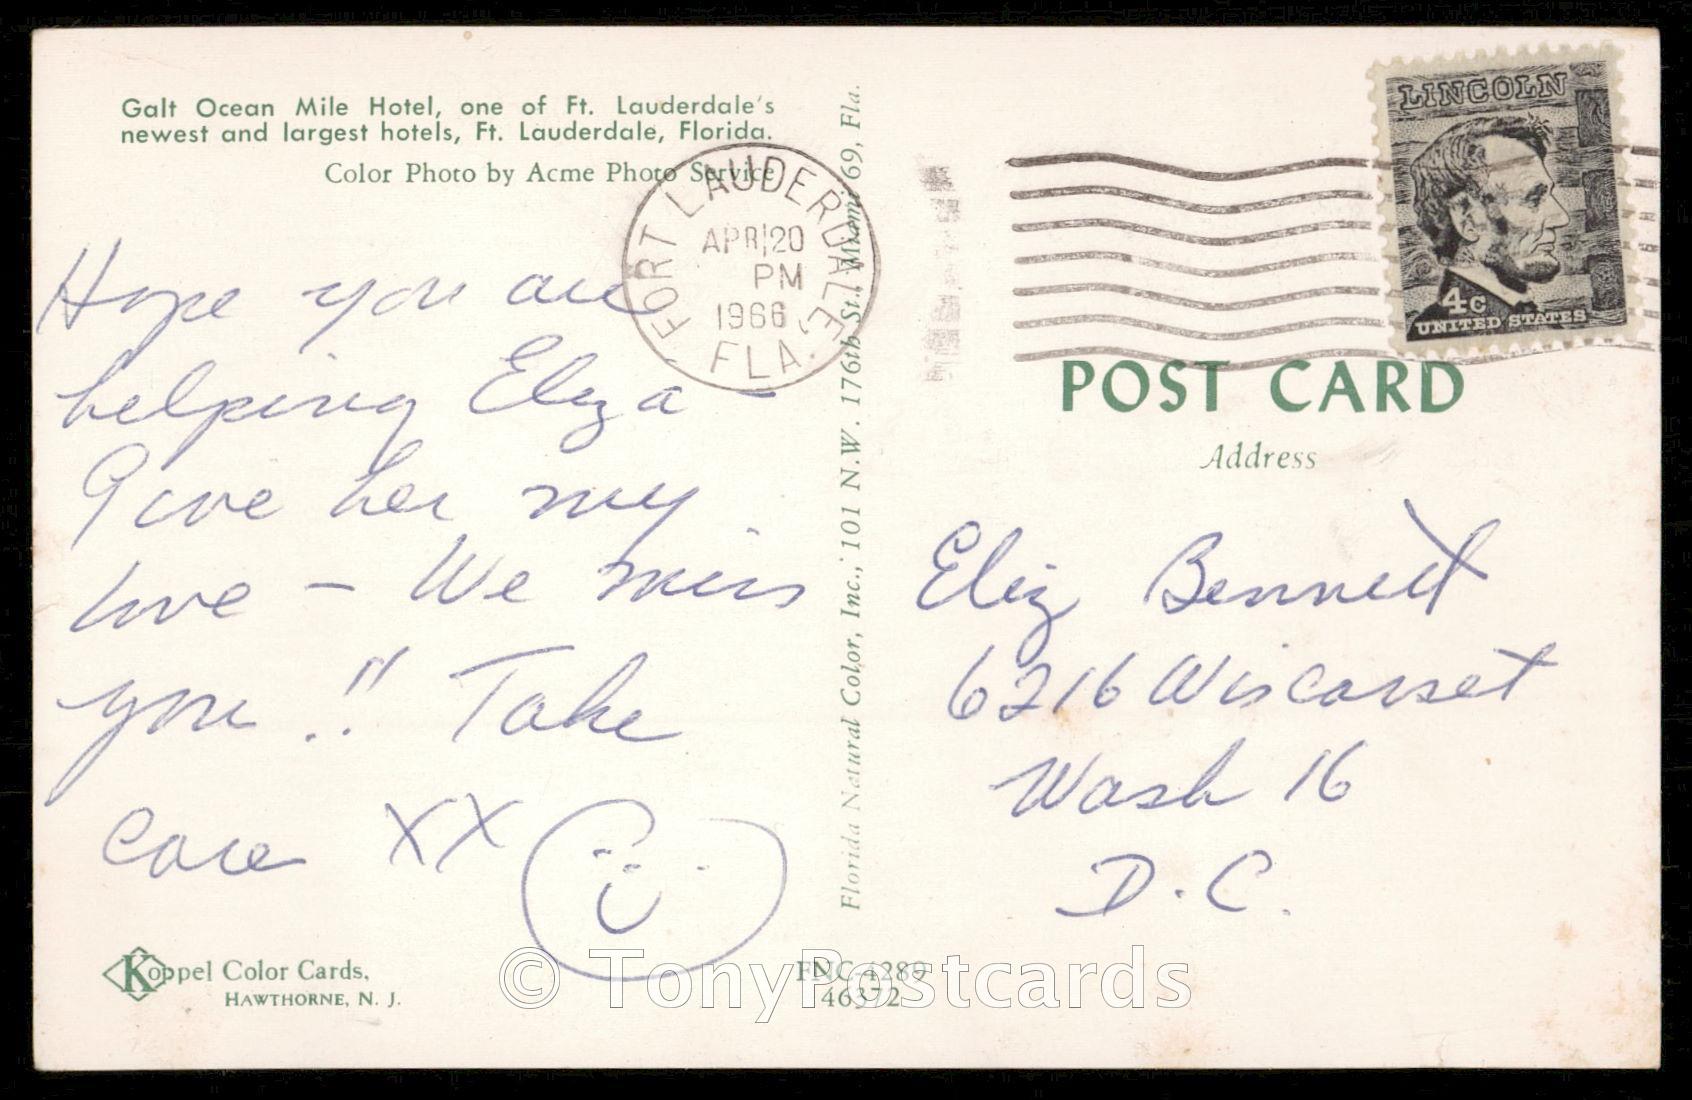 Galt Ocean Mile Hotel, one of Ft. Lauderdale's
newest and largest hotels, Ft. Lauderdale, Florida.
Color Photo by Acme Photo Service
Hope you are
helping Eliza -
Give her my
love - We miss
you!! Take
care XX
Koppel Color Cards,
HAWTHORNE, N. J.
FORT LAUDERDALE,
APR 20
PM
1966
FLA.
Florida Natural Color, Inc., 101 N.W. 176th St., Miami 69, Fla.
FNC-4289
46372
LINCOLN
4c
UNITED STATES
POST CARD
Address
Eliz Bennett
6216 Wiscasset
Wash 16
D.C.
© TonyPostcards